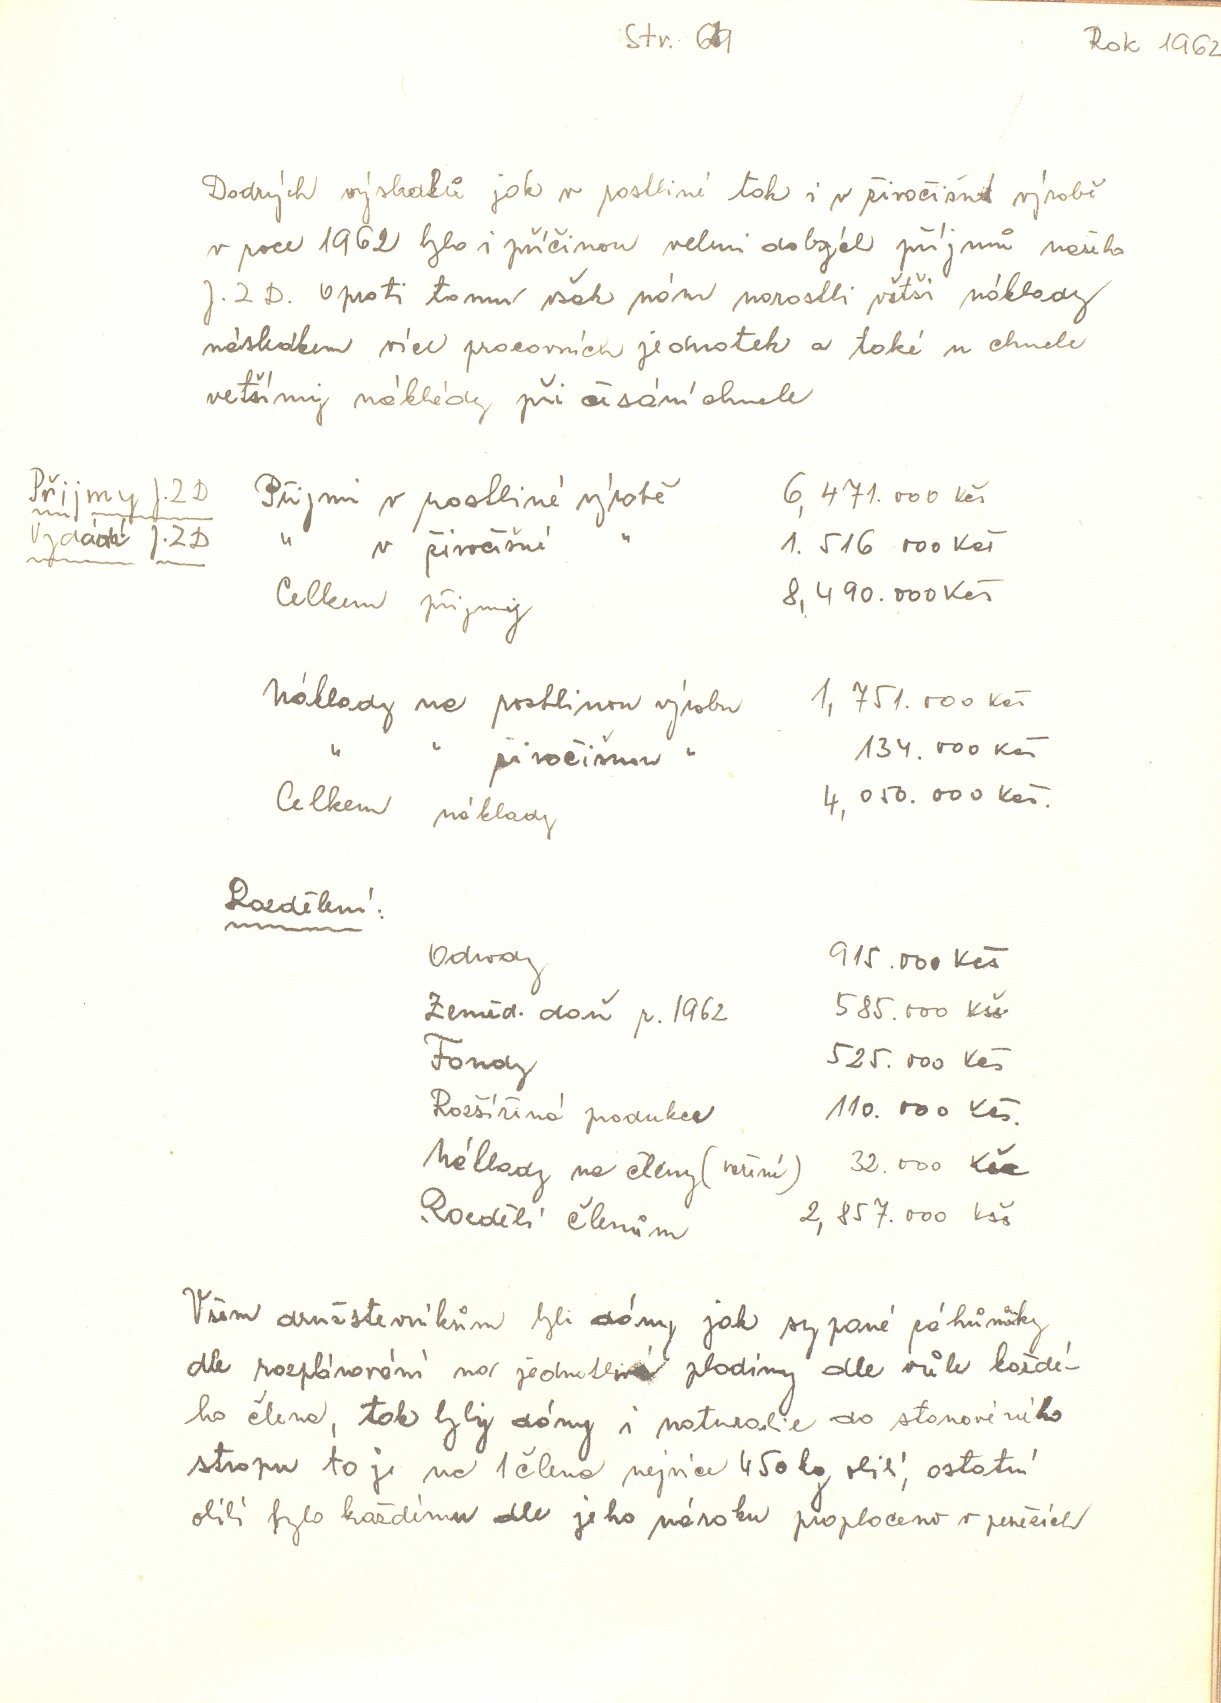 Str. 69
Rok 1962
Dodrých výsledků jak v rostliné tak i v živočišné výrobě
v roce 1962 bylo i příčinou velmi dobrých příjmů našeho
J.Z D. Oproti tomu však nám narostli větši náklady
následkem více pracovních jednotek a také u chmele
vetšímy náklády při česání chmele
Příjmy J.Z D
Vydání J.Z D
Přijmi v rostliné výrobě 6,471.000 Kčs
" v živočišné " 1.516 000 Kčs
Celkem přijmy 8,490.000 Kčs
Náklady na rostlinou výrobu 1,751.000 Kčs
" " živočišnou " 134.000 Kčs
Celkem náklady 4,050.000 Kčs.
Rozdělení:
Odvody 915.000 Kčs
Zeměd. daň r. 1962 585.000 Kčs
Fondy 525.000 Kčs
Rozšířená produkce 110.000 Kčs.
Náklady na členy (vaření) 32.000 Kčs
Rozdělí členům 2,857.000 Kčs
Všem družstevníkům byli dány jak sypané záhůmňky
dle rozplánování na jednotlivé plodiny dle vůle každé-
ho člena, tak byly dány i naturalie do stanoveného
stropu to je na 1 člena nejvíce 450 kg obilí, ostatní
obilí bylo každému dle jeho nároku proplaceno v penězích